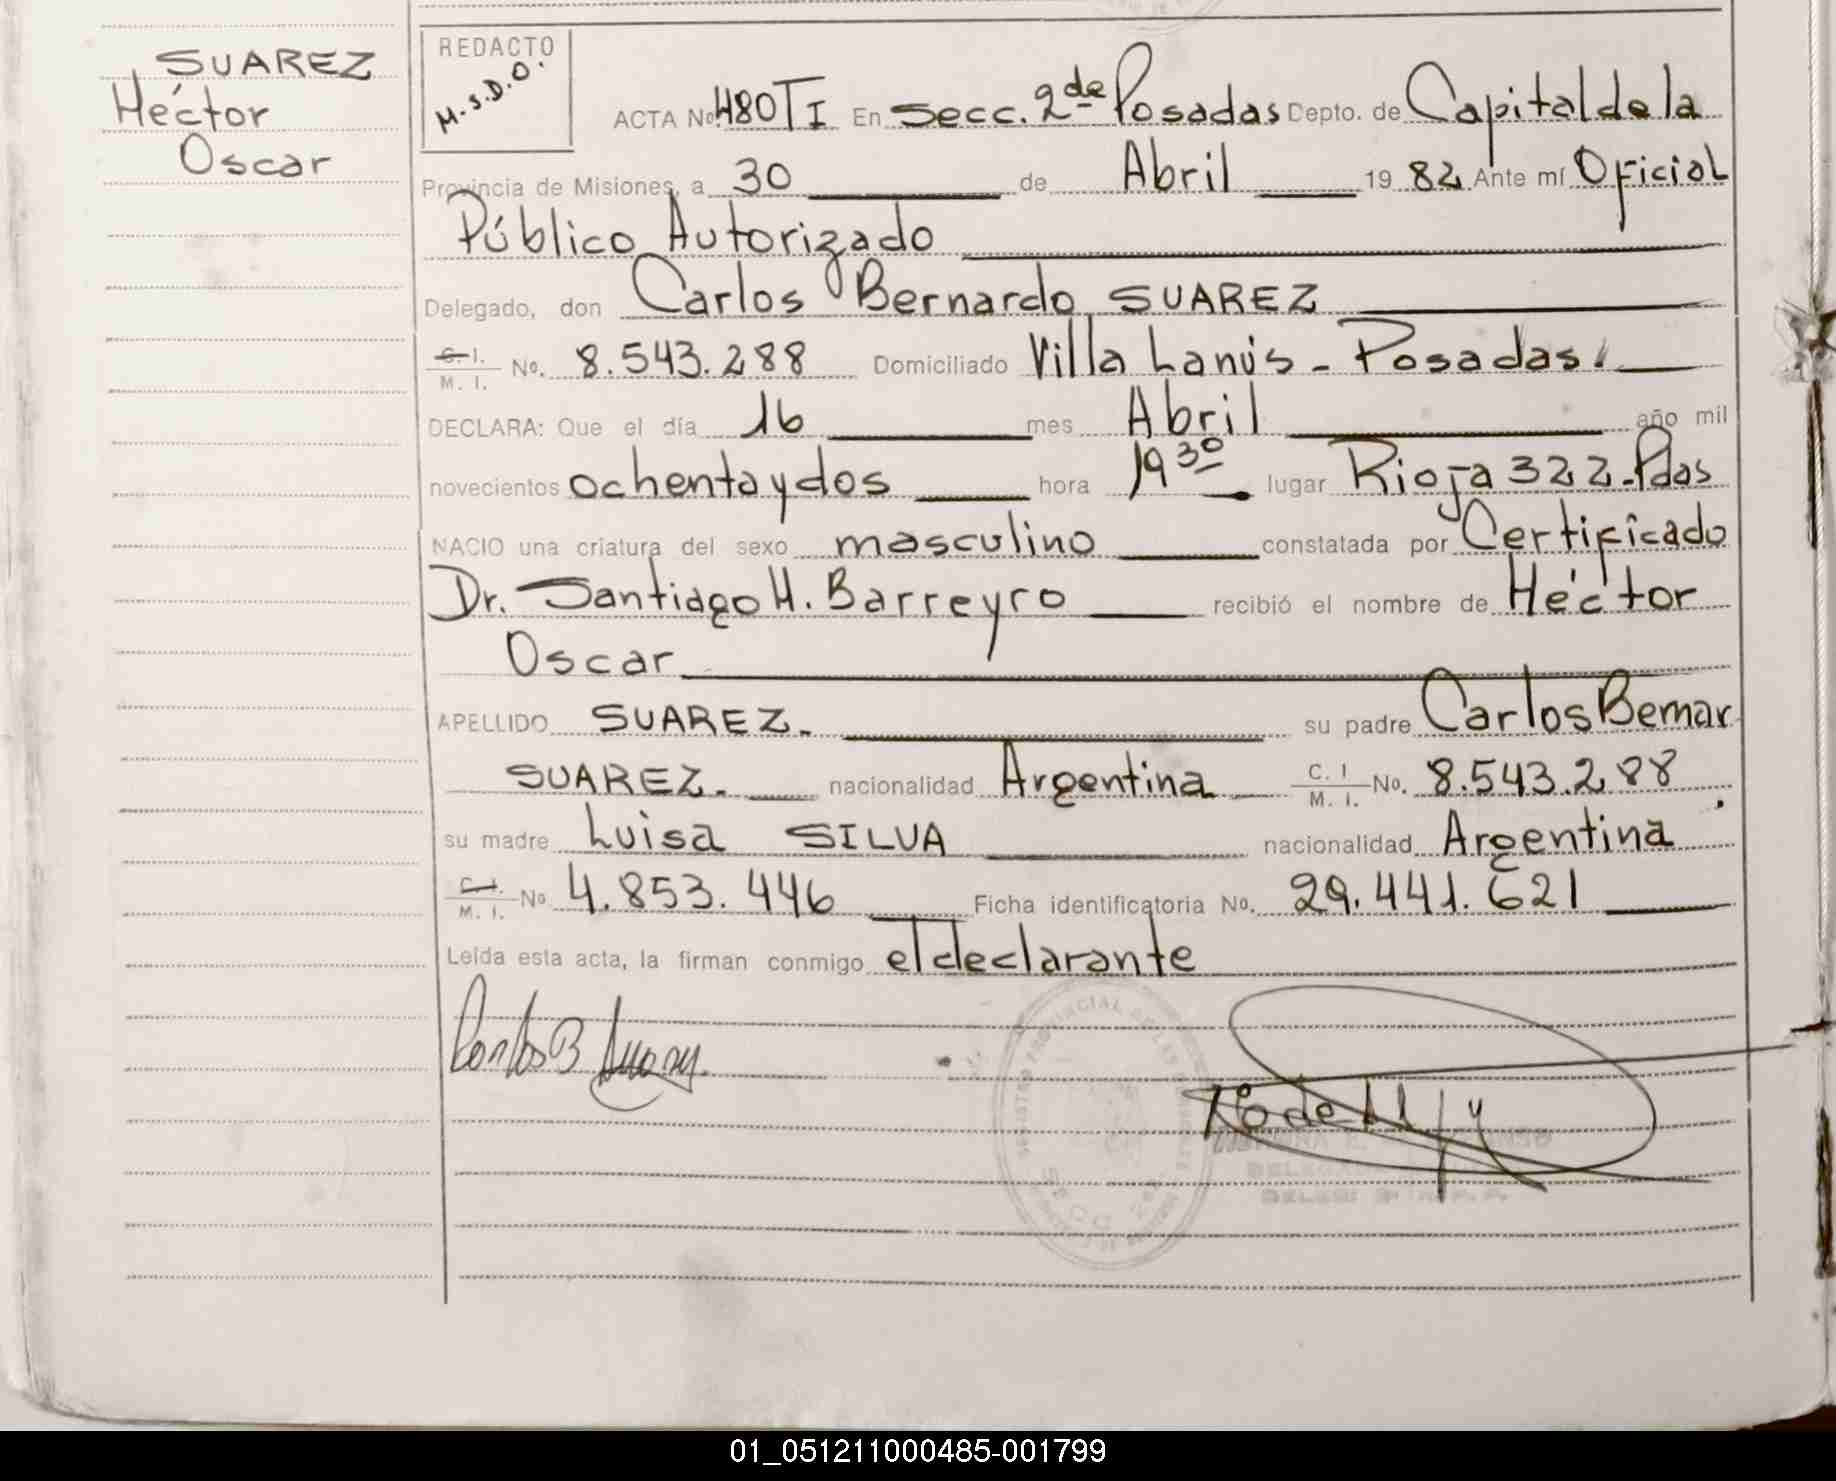 SUAREZ
Héctor
Oscar
REDACTO
M.S.D.O.
ACTA No 480 T I En Secc. 2da de Posadas Depto. de Capital de la
Provincia de Misiones, a 30 de Abril 19 82 Ante mí Oficial
Público Autorizado
Delegado, don Carlos Bernardo SUAREZ
C. I.
M. I. No. 8.543.288 Domiciliado Villa Lanús - Posadas.
DECLARA: Que el día 16 mes Abril año mil
novecientos ochenta y dos hora 19 30 lugar Rioja 322-Pdas
NACIO una criatura del sexo masculino constatada por Certificado
Dr. Santiago H. Barreyro recibió el nombre de Héctor
Oscar
APELLIDO SUAREZ. su padre Carlos Bernar
SUAREZ. nacionalidad Argentina C. I
M. I. No. 8.543.288
su madre Luisa SILVA nacionalidad Argentina
C. I.
M. I. No 4.853.446 Ficha identificatoria No. 29.441.621
Leída esta acta, la firman conmigo el declarante
Carlos B Suarez
SECC 2da
01_051211000485-001799